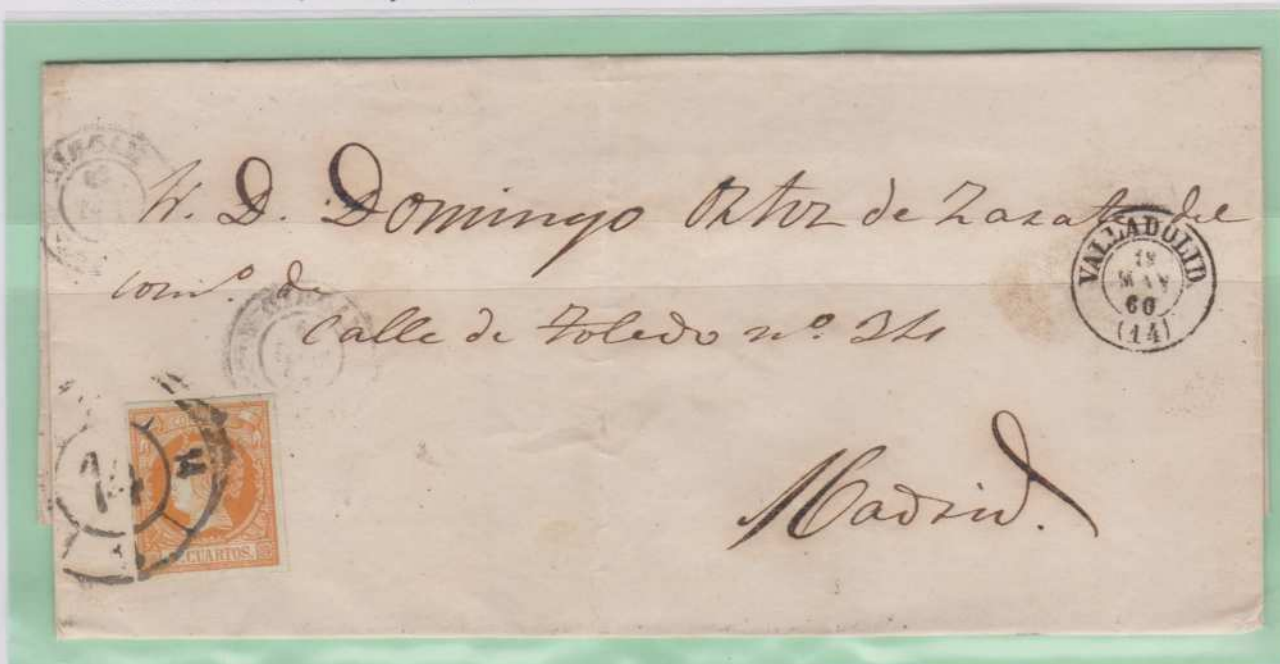 D. Domingo Ortiz de Zarate del
com.º de
Calle de Toledo nº 34
Madrid.
VALLADOLID.
MAY
60
(14)
14
CUARTOS.